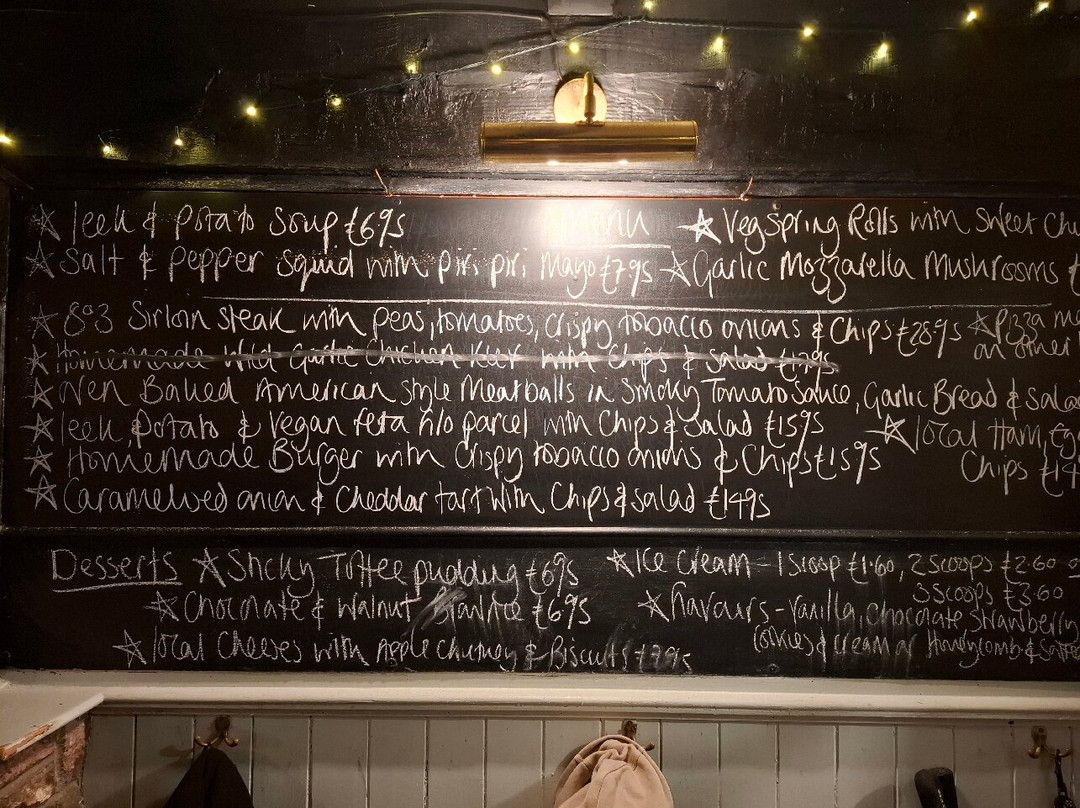 ☆ leek & Potato Soup £6.95 Menu ☆ Veg Spring Rolls with Sweet
☆ Salt & pepper squid with piri piri Mayo £7.95 ☆ Garlic Mozzarella Mushrooms £
☆ 8oz Sirloin steak with peas, tomatoes, crispy tobacco onions & Chips £28.95 ☆ Pizza
on other
☆ Homemade Wild Garlic Chicken Kiev with Chips & Salad
☆ Oven Baked American style Meatballs in Smoky Tomato Sauce, Garlic Bread & Salad
☆ leek, potato & Vegan feta filo parcel with Chips & Salad £15.95 ☆ local Ham,
☆ Homemade Burger with Crispy tobacco onions & Chips £15.95 Chips
☆ Caramelised onion & Cheddar tart with Chips & Salad £14.95
Desserts ☆ Sticky Toffee pudding £6.95 ☆ Ice Cream - 1 Scoop £1.60, 2 Scoops £2.60
3 Scoops £3.60
☆ Chocolate & Walnut Brownie £6.95 ☆ flavours - vanilla, chocolate strawberry
☆ local Cheeses with Apple Chutney & Biscuits £7.95 cookies & cream or Honeycomb &